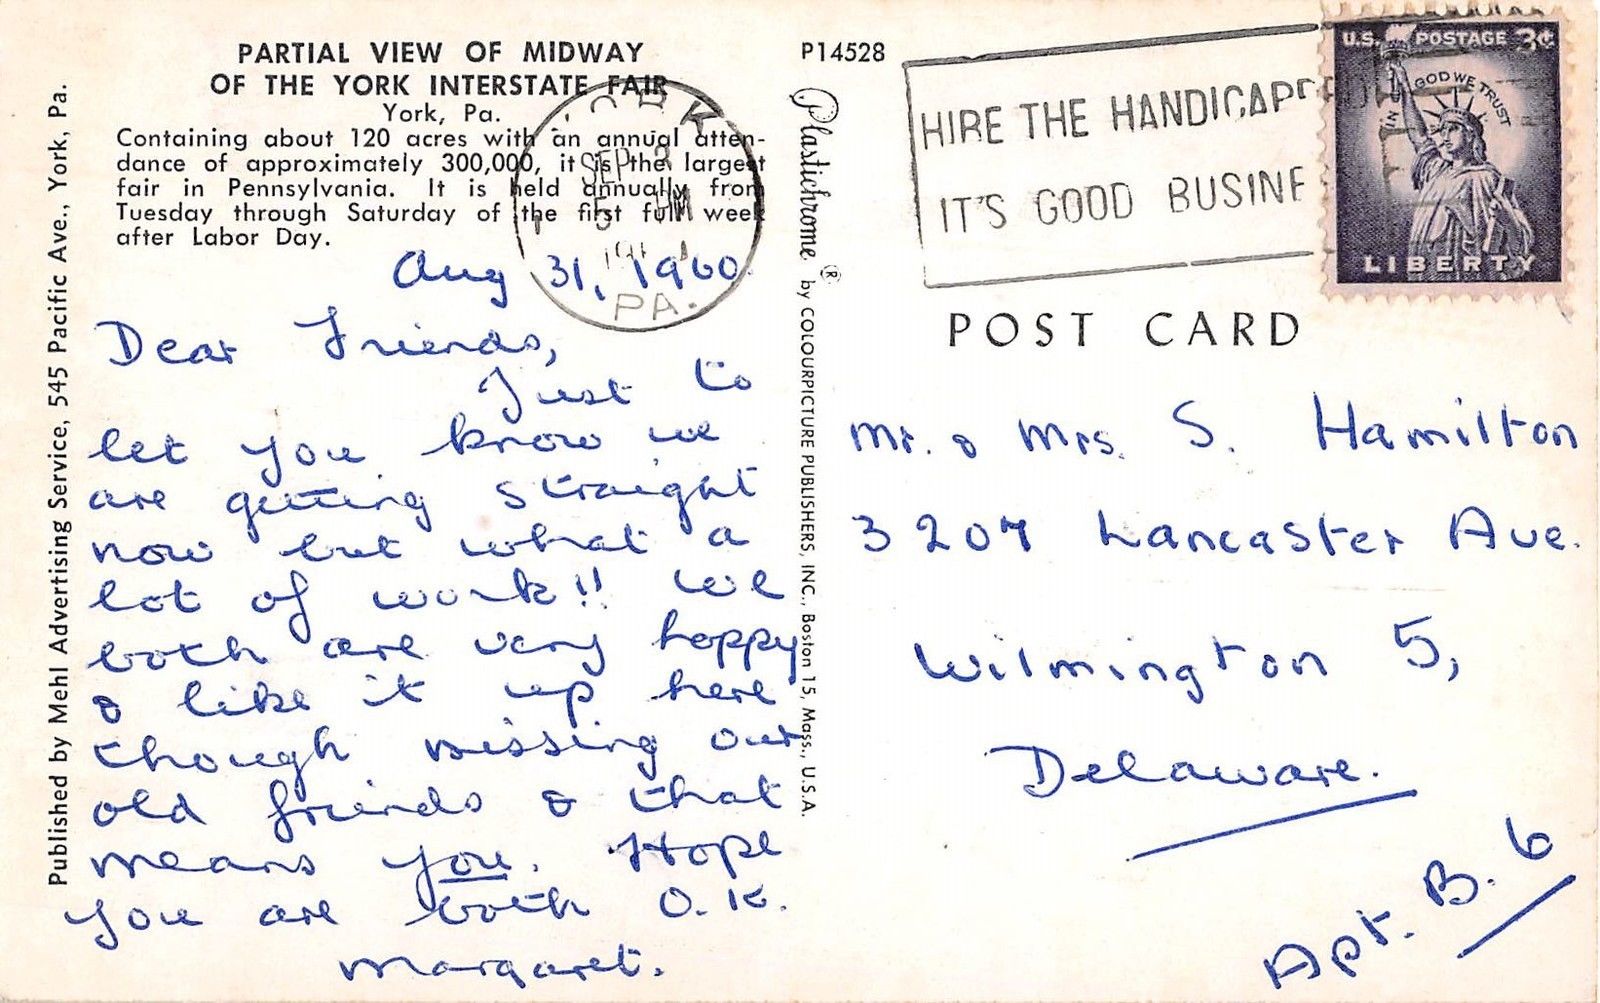 PARTIAL VIEW OF MIDWAY
OF THE YORK INTERSTATE FAIR
York, Pa.
Containing about 120 acres with an annual atten-
dance of approximately 300,000, it is the largest
fair in Pennsylvania. It is held annually from
Tuesday through Saturday of the first full week
after Labor Day.
Aug 31, 1960.
Dear Friends,
Just to
let you know we
are getting straight
now but what a
lot of work!! We
both are very happy
& like it up here
though missing our
old friends & that
means you. Hope
you are both O.K.
Margaret.
Published by Mehl Advertising Service, 545 Pacific Ave., York, Pa.
P14528
Plastichrome ® by COLOURPICTURE PUBLISHERS, INC., Boston 15, Mass., U.S.A.
YORK
SEP 3
5 PM
PA.
HIRE THE HANDICAPP
IT'S GOOD BUSINE
U.S. POSTAGE 3¢
IN GOD WE TRUST
LIBERTY
POST CARD
Mr. & Mrs. S. Hamilton
3207 Lancaster Ave.
Wilmington 5,
Delaware.
Apt. B. 6